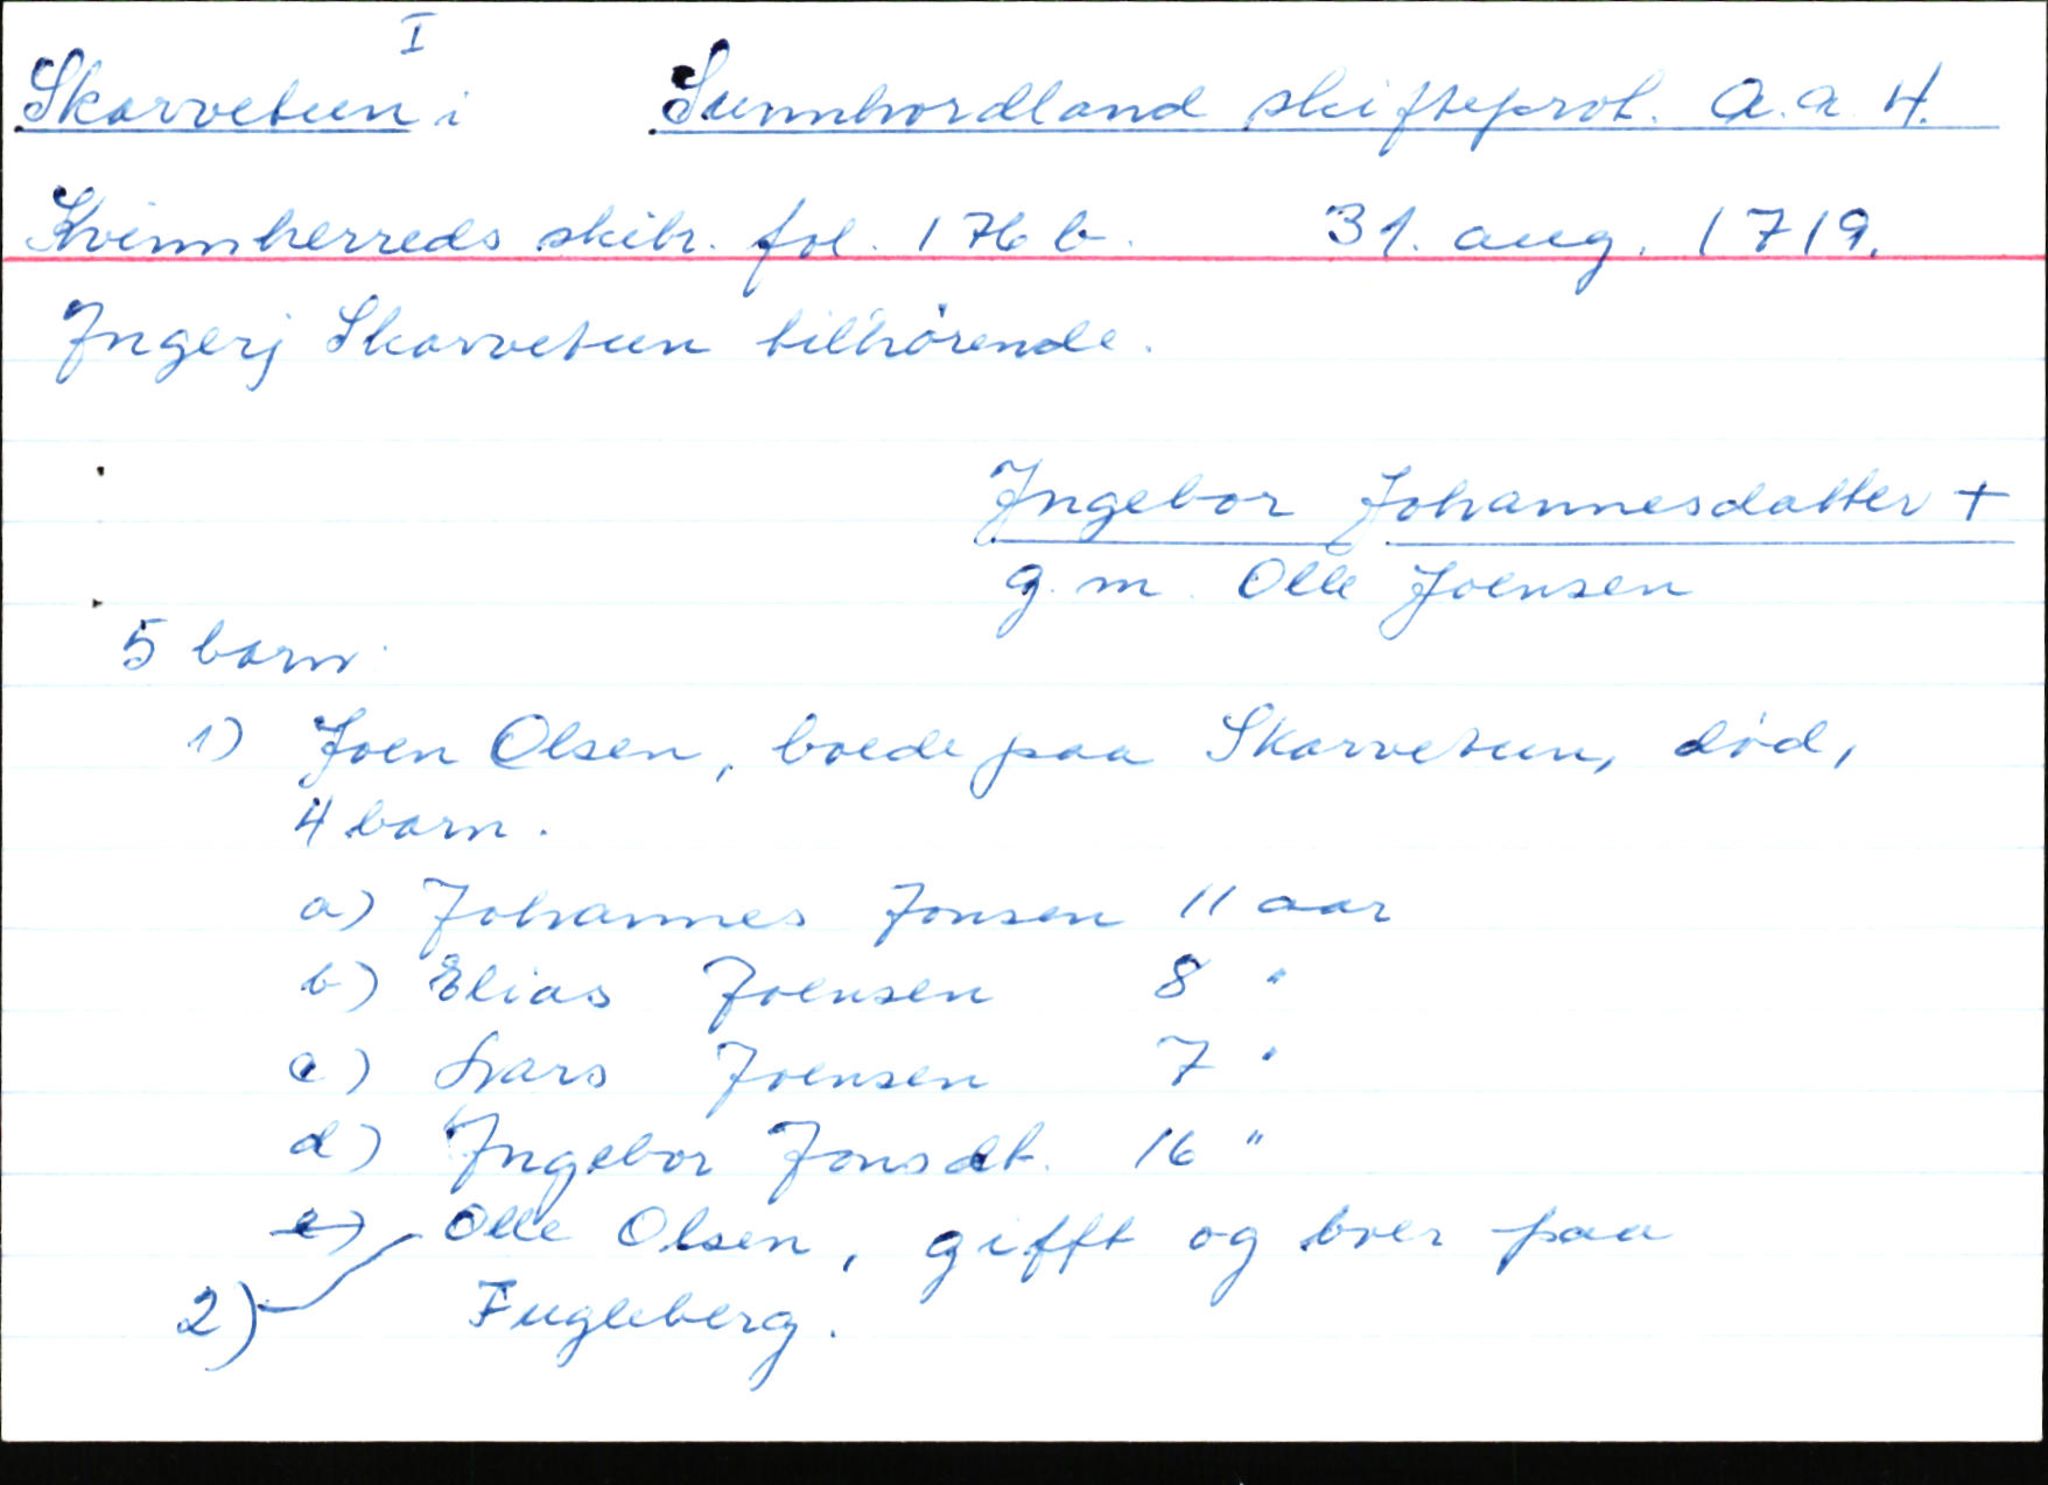 I
Skarvetun i Sunnhordland skifteprot. A. a 4.
Kvinnherreds skibr. fol. 176 b. 31. aug. 1719.
Ingerj Skarvetun tilhörende.
Ingebor Johannesdatter +
g. m. Olle Joensen
5 barn
1) Joen Olsen, boede paa Skarvetun, död,
4 barn.
a) Johannes Jonsen 11 aar
b) Elias Joensen 8 "
c) Lars Joensen 7 "
d) Ingebor Jonsdt. 16 "
e) Olle Olsen, gifft og boer paa
2) Fugleberg.